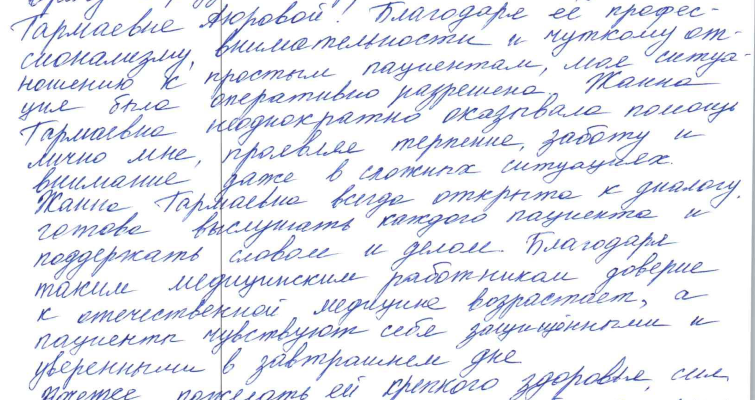 Гармаевне Аюровой! Благодаря её профес-
сионализму, внимательности и чуткому от-
ношению к простым пациентам, моя ситуа-
ция была оперативно разрешена. Жанна
Гармаевна неоднократно оказывала помощь
лично мне, проявляя терпение, заботу и
внимание даже в сложных ситуациях.
Жанна Гармаевна всегда открыта к диалогу,
готова выслушать каждого пациента и
поддержать словом и делом. Благодаря
таким медицинским работникам доверие
к отечественной медицине возрастает, а
пациенты чувствуют себя защищёнными и
уверенными в завтрашнем дне
пожелать ей крепкого здоровья, сил